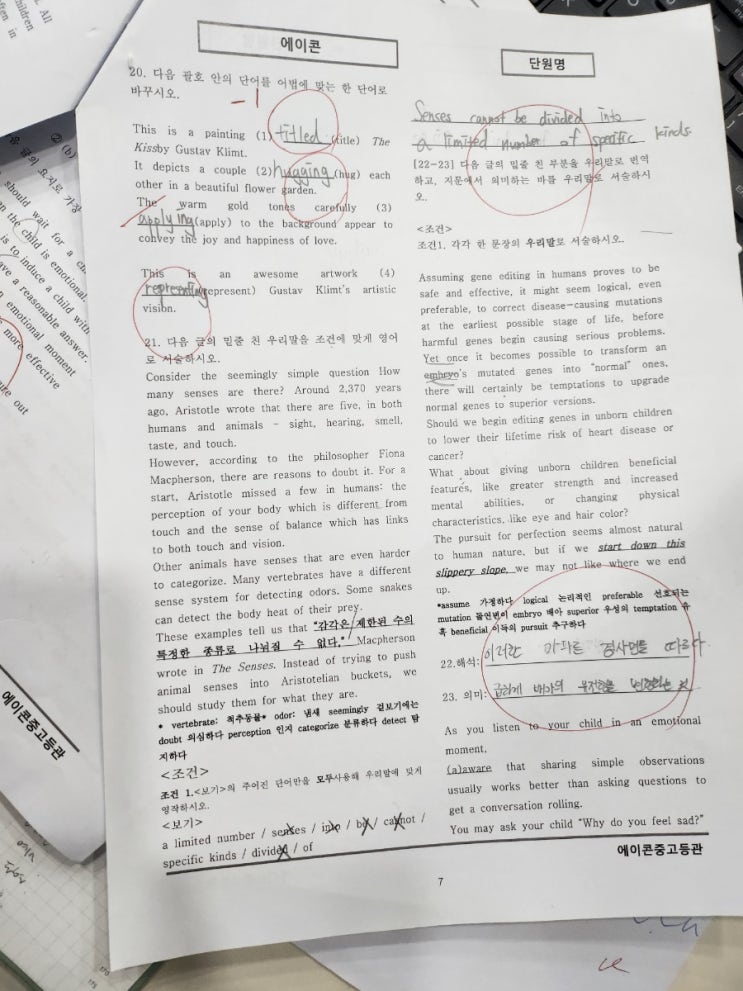 All
children
often in
에이콘
20. 다음 괄호 안의 단어를 어법에 맞는 한 단어로
바꾸시오.
-1
This is a painting (1) titled (title) The
Kissby Gustav Klimt.
It depicts a couple (2) hugging (hug) each
other in a beautiful flower garden.
The warm gold tones carefully (3)
applying (apply) to the background appear to
convey the joy and happiness of love.
This is an awesome artwork (4)
representing (represent) Gustav Klimt's artistic
vision.
21. 다음 글의 밑줄 친 우리말을 조건에 맞게 영어
로 서술하시오.
Consider the seemingly simple question How
many senses are there? Around 2,370 years
ago, Aristotle wrote that there are five, in both
humans and animals - sight, hearing, smell,
taste, and touch.
However, according to the philosopher Fiona
Macpherson, there are reasons to doubt it. For a
start, Aristotle missed a few in humans: the
perception of your body which is different from
touch and the sense of balance which has links
to both touch and vision.
Other animals have senses that are even harder
to categorize. Many vertebrates have a different
sense system for detecting odors. Some snakes
can detect the body heat of their prey.
These examples tell us that "감각은 제한된 수의
특정한 종류로 나뉘질 수 없다," Macpherson
wrote in The Senses. Instead of trying to push
animal senses into Aristotelian buckets, we
should study them for what they are.
* vertebrate: 척추동물* odor: 냄새 seemingly 겉보기에는
doubt 의심하다 perception 인지 categorize 분류하다 detect 탐
지하다
<조건>
조건 1.<보기>의 주어진 단어만을 모두사용해 우리말에 맞게
영작하시오.
<보기>
a limited number / senses / into / be / cannot /
specific kinds / divided / of
단원명
Senses cannot be divided into
a limited number of specific kinds.
[22-23] 다음 글의 밑줄 친 부분을 우리말로 번역
하고, 지문에서 의미하는 바를 우리말로 서술하시
오.
<조건>
조건1. 각각 한 문장의 우리말로 서술하시오.
Assuming gene editing in humans proves to be
safe and effective, it might seem logical, even
preferable, to correct disease-causing mutations
at the earliest possible stage of life, before
harmful genes begin causing serious problems.
Yet once it becomes possible to transform an
embryo's mutated genes into "normal" ones,
there will certainly be temptations to upgrade
normal genes to superior versions.
Should we begin editing genes in unborn children
to lower their lifetime risk of heart disease or
cancer?
What about giving unborn children beneficial
features, like greater strength and increased
mental abilities, or changing physical
characteristics, like eye and hair color?
The pursuit for perfection seems almost natural
to human nature, but if we start down this
slippery slope, we may not like where we end
up.
*assume 가정하다 logical 논리적인 preferable 선호되는
mutation 돌연변이 embryo 배아 superior 우성의 temptation 유
혹 beneficial 이득의 pursuit 추구하다
22.해석: 이러한 가파른 경사면를 따르다
23. 의미: 배아의 유전형을
As you listen to your child in an emotional
moment,
(a)aware that sharing simple observations
usually works better than asking questions to
get a conversation rolling.
You may ask your child "Why do you feel sad?"
에이콘중고등관
7
should wait for a
the child is emotional.
is to induce a child with
have a reasonable answer.
emotional moment
more effective
out
에이콘중고등관